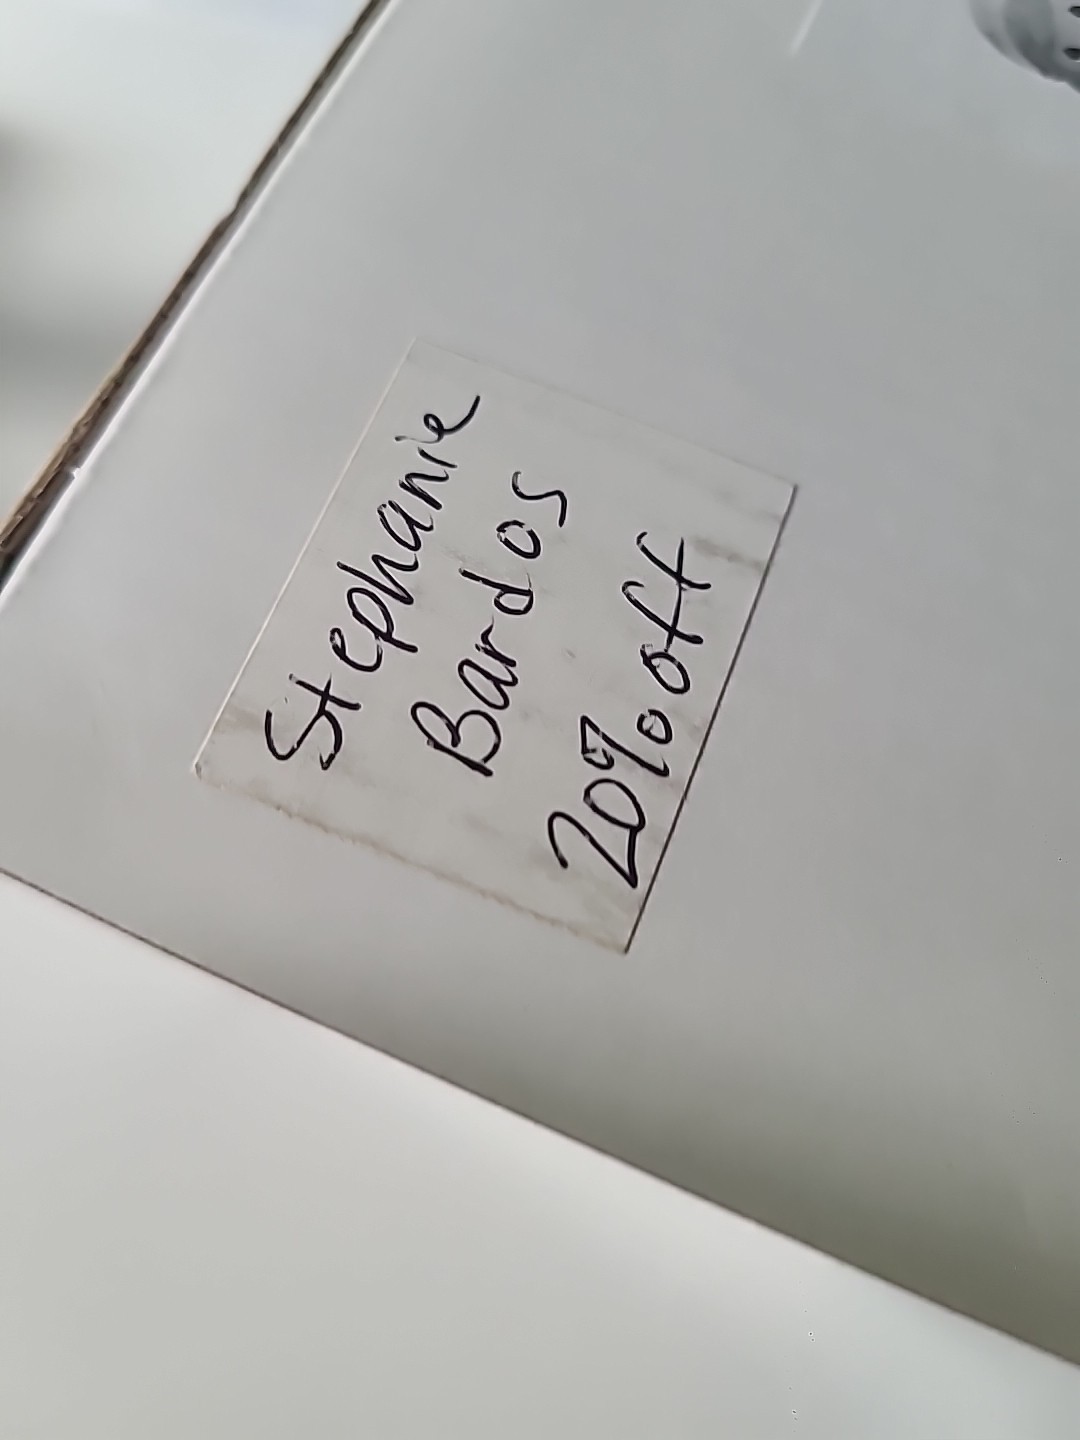 Stephanie
Bardos
20% off